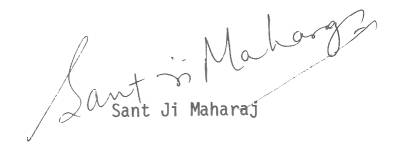 Sant Ji Maharaj
Sant Ji Maharaj